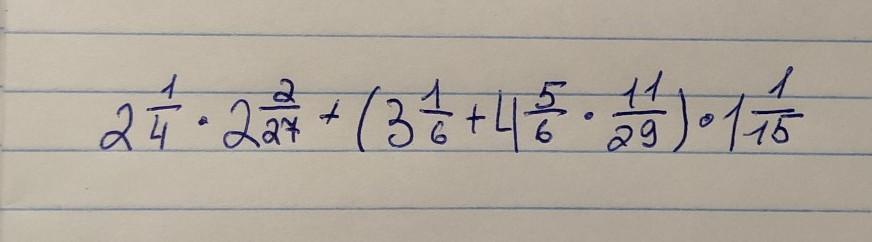 2 1/4 · 2 2/27 + (3 1/6 + 4 5/6 · 11/29) · 1 1/15